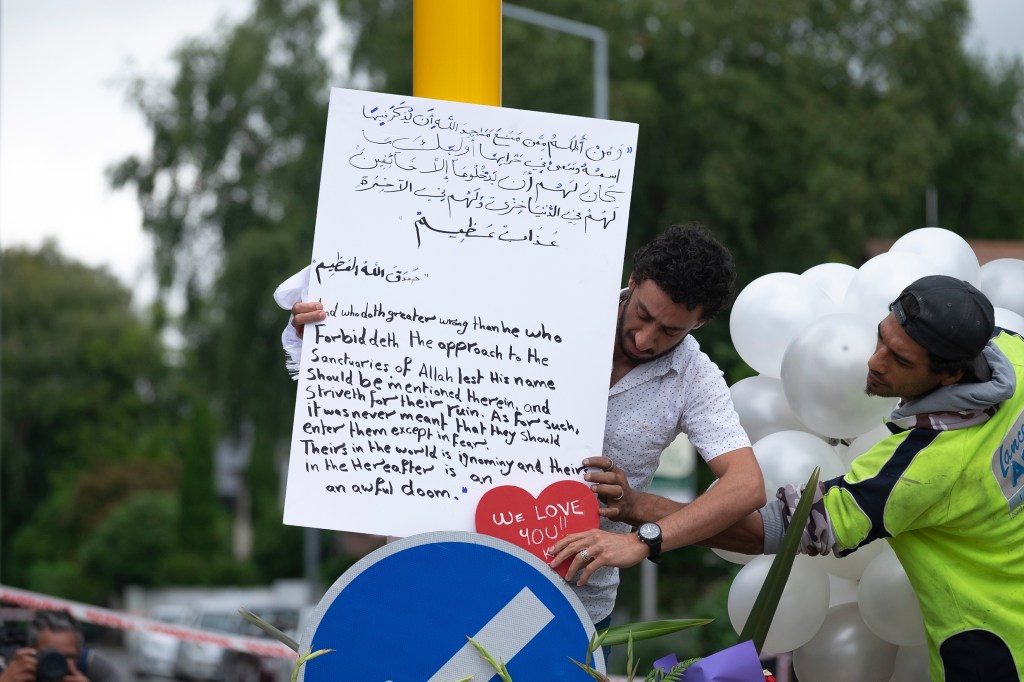 "وَمَنْ أَظْلَمُ مِمَّن مَّنَعَ مَسَاجِدَ اللَّهِ أَن يُذْكَرَ فِيهَا
اسمُهُ وَسَعَىٰ فِي خَرَابِهَا أُولَٰئِكَ مَا
كَانَ لَهُمْ أَن يَدْخُلُوهَا إِلَّا خَائِفِينَ
لَهُمْ فِي الدُّنْيَا خِزْيٌ وَلَهُمْ فِي الآخِرَةِ
عَذَابٌ عَظِيمٌ"
"صَدَقَ اللَّهُ العَظِيم"
And who doth greater wrong than he who
Forbiddeth the approach to the
Sanctuaries of Allah lest His name
Should be mentioned therein, and
Striveth for their ruin. As for such,
it was never meant that they should
enter them except in fear.
Theirs in the world is ignominy and theirs
in the Hereafter is an
an awful doom."
WE LOVE
YOU!!